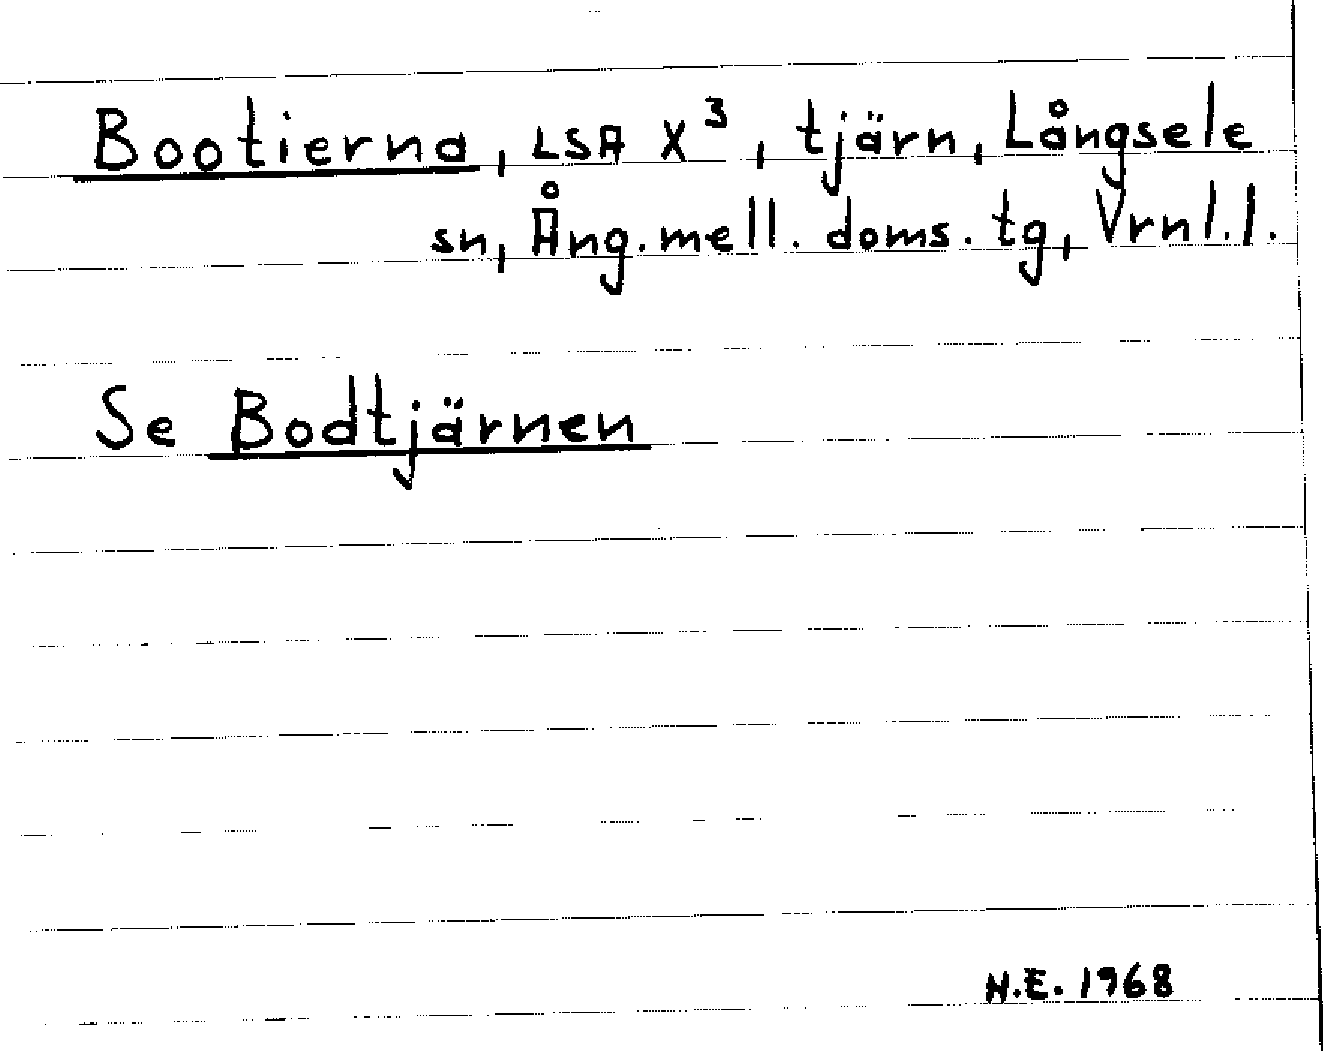 Bootierna, LSA X³, tjärn, Långsele
sn, Ång. mell. doms. tg, Vrnl.l.
Se Bodtjärnen
N.E. 1968